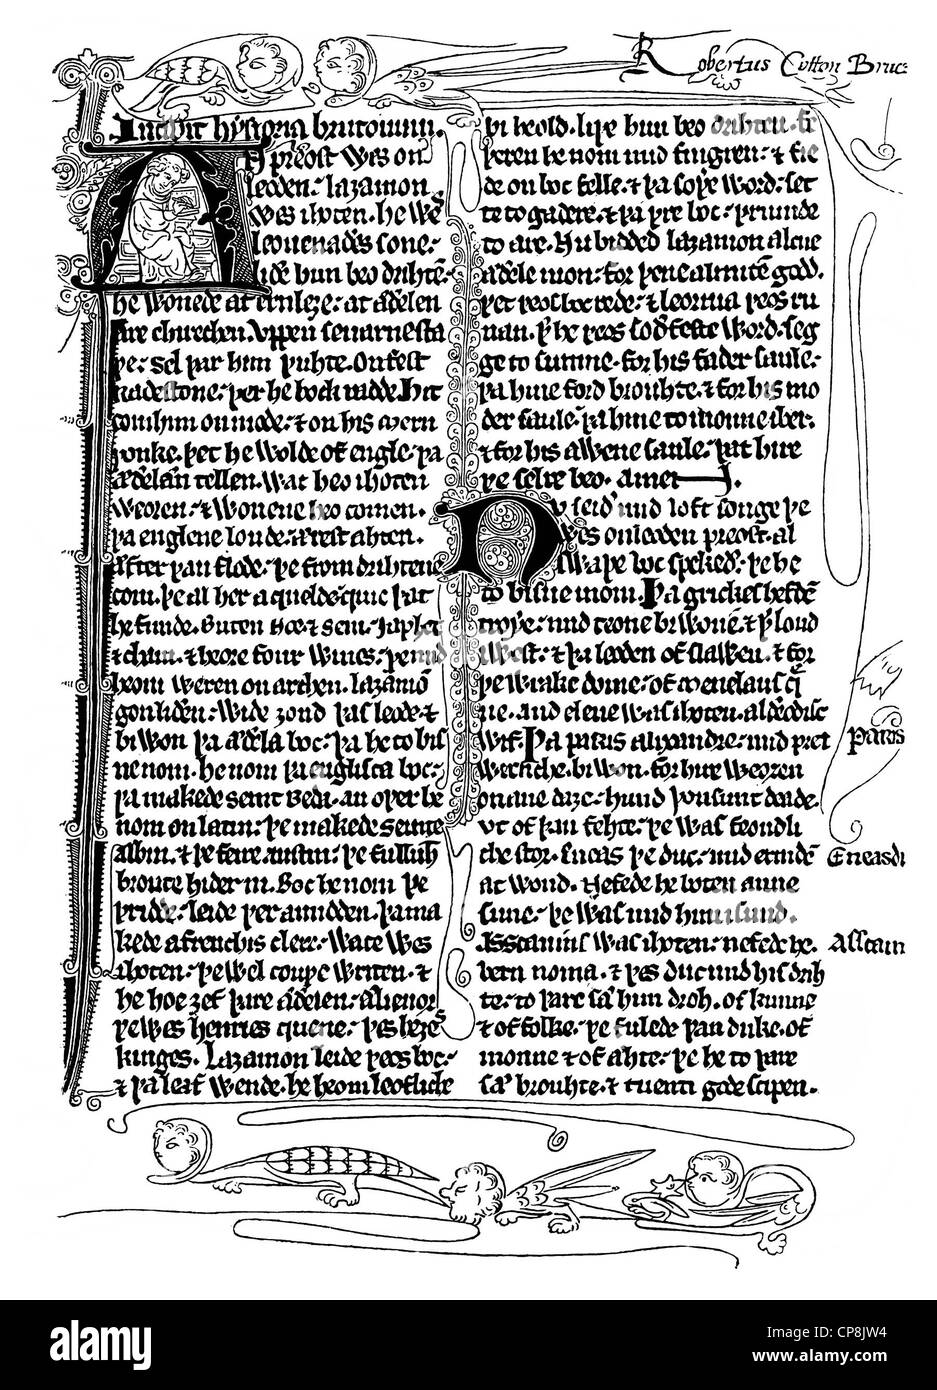 Robertus Cotton Bruce
Incipit hystoria brutonum.
AN preost wes on
leoden. laȝamon
wes ihoten. he wes
leouenaðes sone.
liðe him beo drihtē.
he wonede at ernleȝe. at æðelen
are chirechen. vppen seuarne staþe
sel þar him þuhte. on fest
radestone. þer he bock radde. hit
com him on mode. & on his mern
þonke. þet he wolde of engle. þa
æðelæn tellen. wat heo ihoten
weoren. & wonene heo comen.
þa englene londe. ærest ahten.
æfter þan flode. þe from drihtene
com. þe al her a quelde quic þat
he funde. buten noe. & sem. japhet
& cham. & heore four wiues. þe mid
heom weren on archen. laȝamō
gon liðen. wide ȝond þas leode. &
biwon þa æðela boc. þa he to bis
ne nom. he nom þa englisca boc.
þa makede seint beda. an oþer he
nom on latin. þe makede seinte
albin. & þe feire austin. þe fulluht
broute hider in. boc he nom þe
þridde. leide þer amidden. þa ma
kede a frenchis clerc. wace wes
ihoten. þe wel couþe writen. &
he hoe ȝef þare æðelen. ælienor
þe wes henries quene. þes heȝes
kinges. laȝamon leide þeos boc.
& þa leaf wende. he heom leofliche
bi heold. liþe him beo drihten. fe
þeren he nom mid fingren. & fie
de on boc felle. & þa soþe word. set
te to gadere. & þa þre boc. þrumde
to are. Nu bidded laȝamon alcne
æðele mon. for þene almiten godd.
þet þeos boc rede. & leornia þeos ru
nan. þ he þeos soðfeste word. seg
ge to sumne. for his fader saule.
þa hine ford brouhte. & for his mo
der saule. þa hine to monne iber.
& for his awene saule. þat hire
þe selre beo. amen.
NV seið mid loft songe þe
wes on leoden preost. al
swa þe boc spekeð. þe he
to bisne inom. Þa grickes hefdē
troye. mid teone biwonē. & þ lond
iwest. & þa leoden of slawen. & for
þe wrake dome. of menelaus q̄
ne. and elene was ihoten. alðeodisc
wif. Þa paris alixandre. mid pret
wrenche. biwon. for hire weoren
on ane daȝe. hund þousunt deade.
vt of þan fehte. þe was feondli
che stor. Eneas þe duc. mid ermdē
at wond. Nefede he boten anne
sune. þe was mid him isund.
Asscanius was ihoten. nefede he.
bern no ma. & þes duc mid his driht
te. to þare sæ him droh. of kunne
& of folke. þe fulede þan duke. of
monne & of ahte. þe he to þare
sæ brouhte. & tuenti gode scipen.
Paris
Eneas di
Asscan
alamy
Image ID: CP8JW4
www.alamy.com